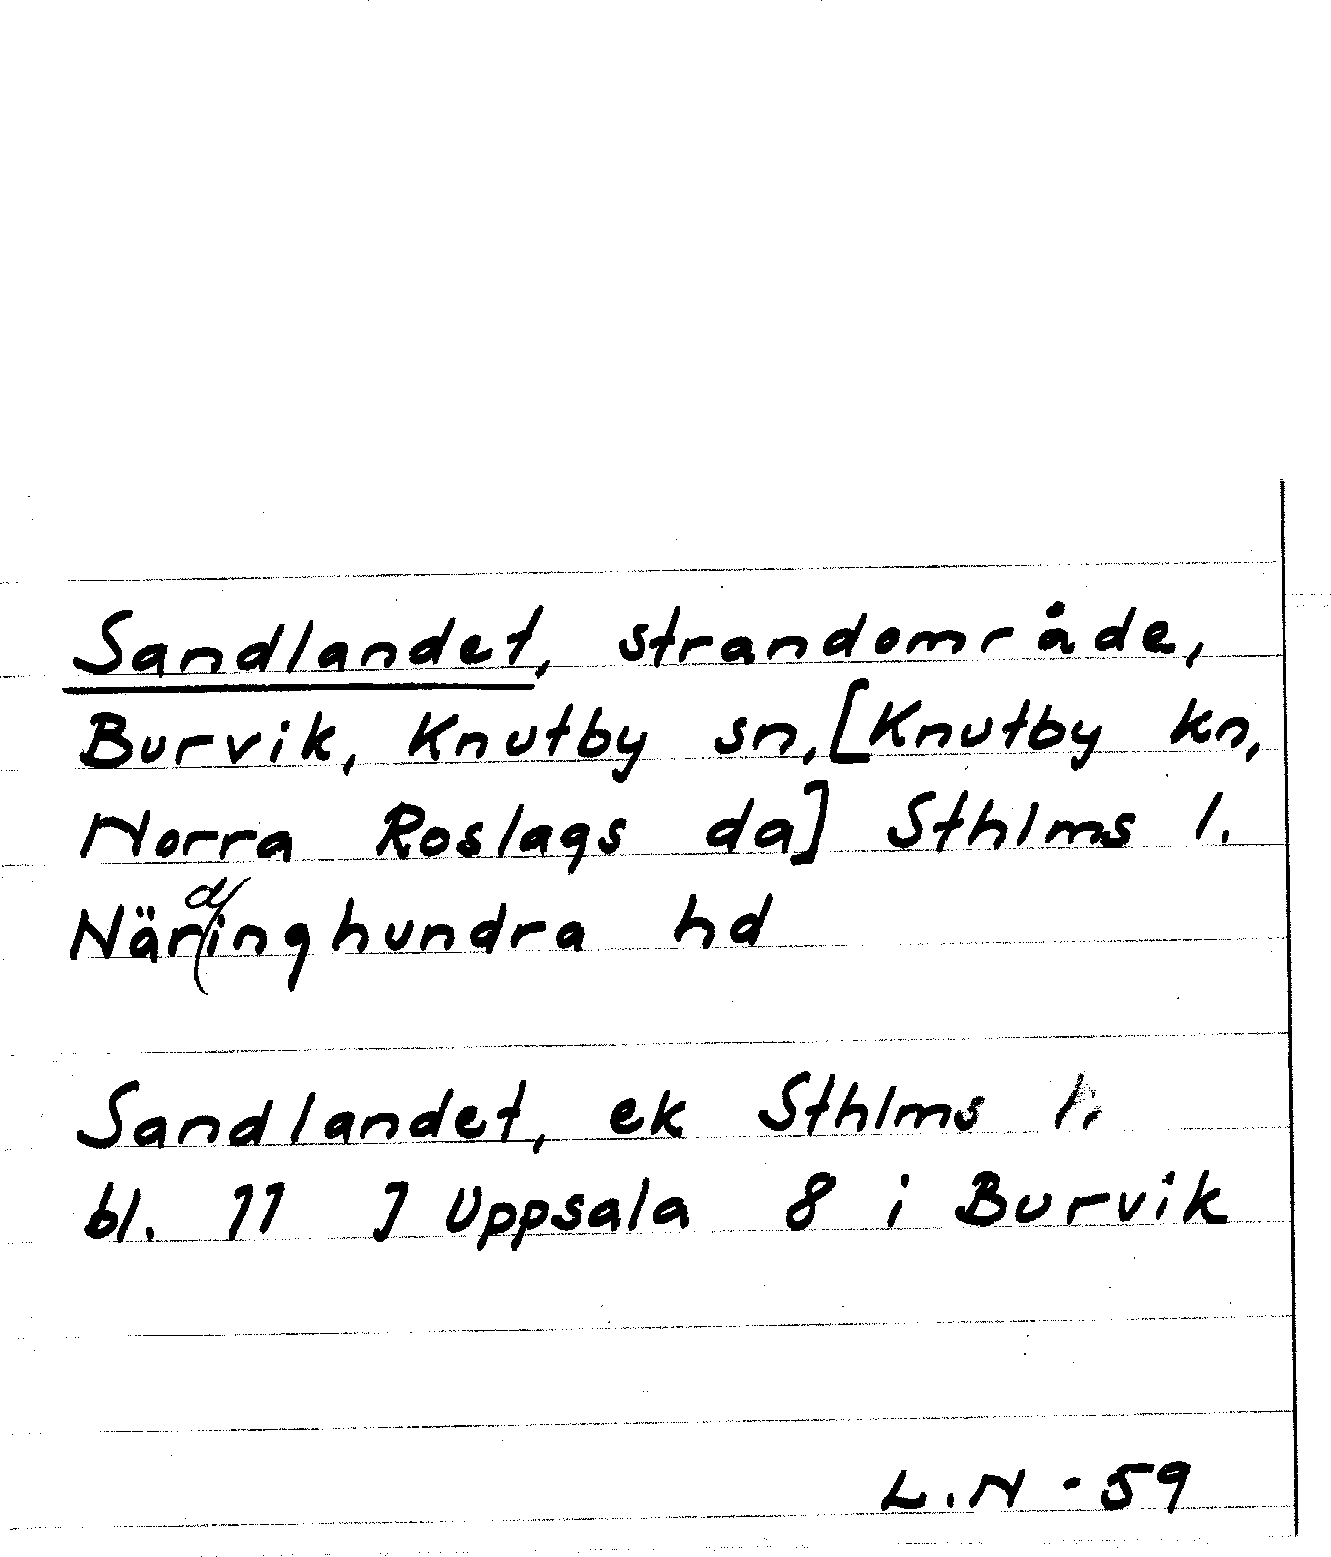 Sandlandet, strandområde,
Burvik, Knutby sn, [Knutby kn,
Norra Roslags da] Sthlms l.
Närdinghundra hd
Sandlandet, ek Sthlms l.
bl. 11 J Uppsala 8 i Burvik
L.N - 59